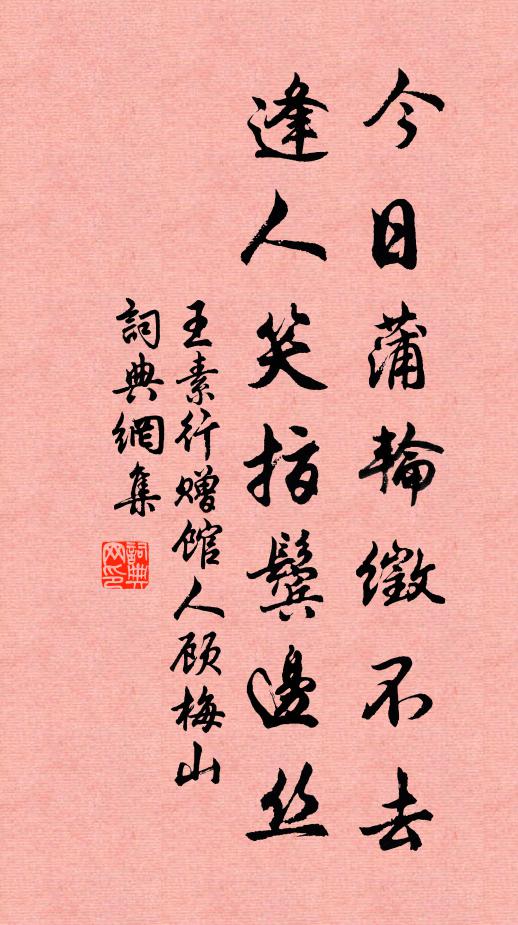 今日蒲輪徵不去
逢人笑指鬢邊丝
王素行赠馆人顾梅山
詞典網集
詞典网印